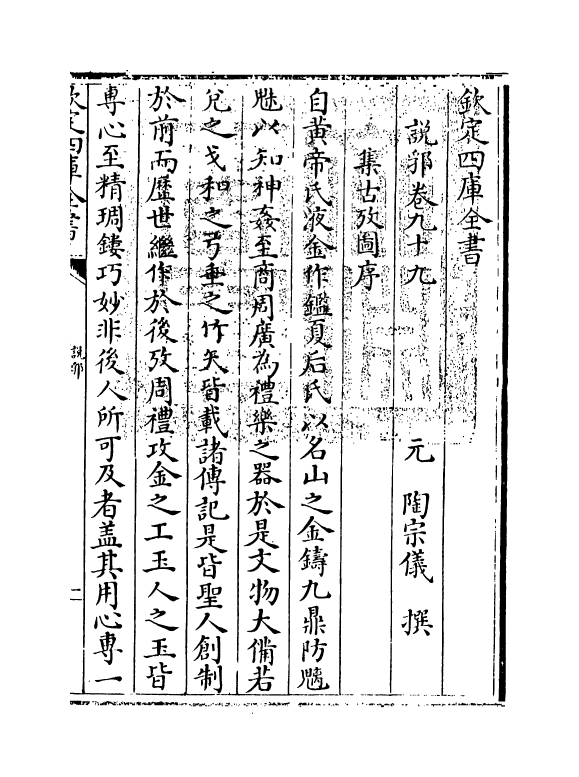 欽定四庫全書
說郛卷九十九 元 陶宗儀 撰
集古攷圖序
自黃帝氏液金作鑑夏后氏以名山之金鑄九鼎防魑
魅以知神姦至商周廣為禮樂之器於是文物大備若
兊之戈和之弓垂之竹矢皆載諸傳記是皆聖人創制
於前而歷世繼作於後攷周禮攻金之工玉人之玉皆
專心至精琱鏤巧妙非後人所可及者葢其用心專一
欽定四庫全書
說郛
二